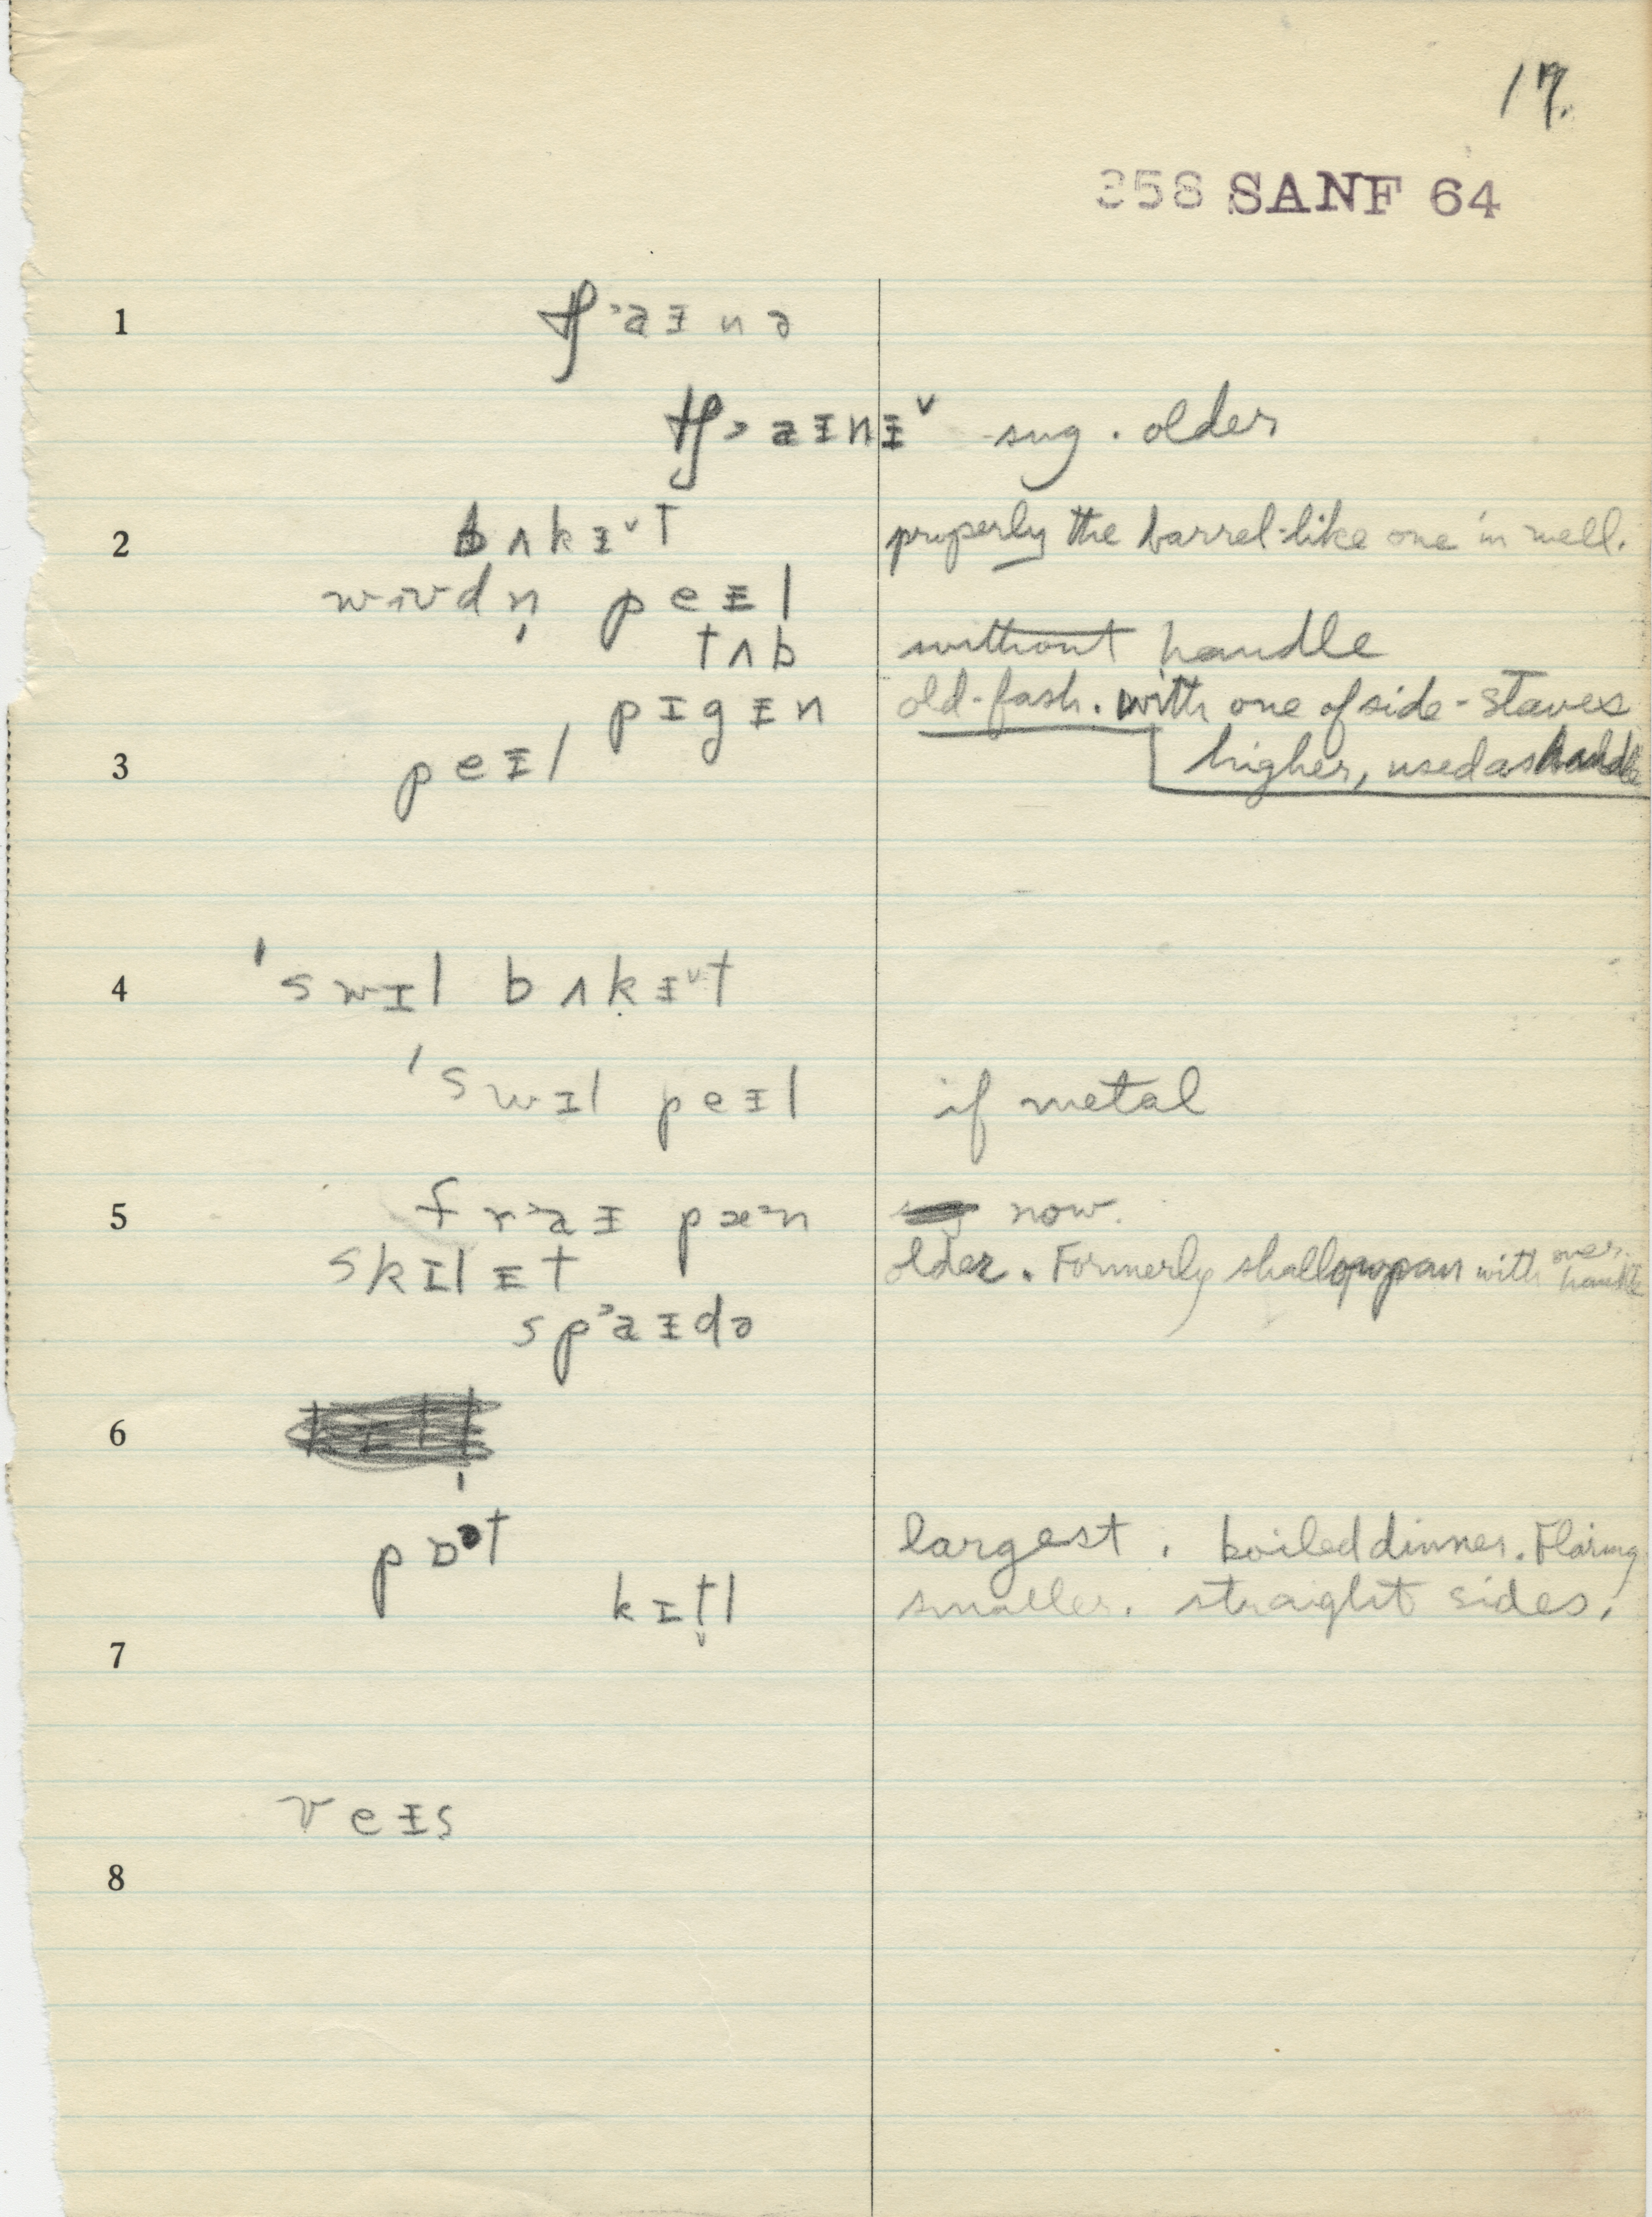 17.
358 SANF 64
1 tʃ˃aᵻnə
tʃ˃aᵻnᵻ˅ sug. older
2 bʌkᵻ˅t properly the barrel-like one in well.
wʊdn̩ peᵻl
tʌb without handle
pɪgᵻn old-fash. with one of side-staves
3 peᵻl higher, used as handle
4 'swɪl bʌkᵻ˅t
'swɪl peᵻl if metal
5 fr˃aᵻ pæ˃n now.
skɪlᵻt older. Formerly shallow pan with over handle
sp˃aᵻdə
6
pɒət largest. boiled dinner. Flaring
kɪt̬l smaller. straight sides.
7
veᵻs
8